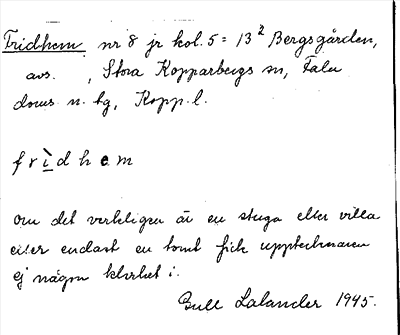 Fridhem nr 8 jr kol. 5 = 13² Bergsgården,
avs. , Stora Kopparbergs sn, Falu
doms. n. tg, Kopp. l.
f r ì d h e m
om det verkligen är en stuga eller villa
eller endast en tomt fick upptecknaren
ej någon klarhet i.
Gull Lalander 1945.